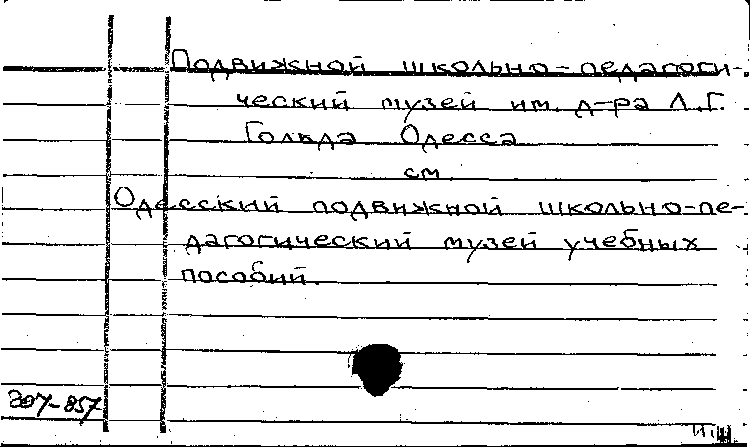 Подвижной школьно-педагоги-
ческий музей им. д-ра Л.Г.
Гольда Одесса
см.
Одесский подвижной школьно-пе-
дагогический музей учебных
пособий.
307-857